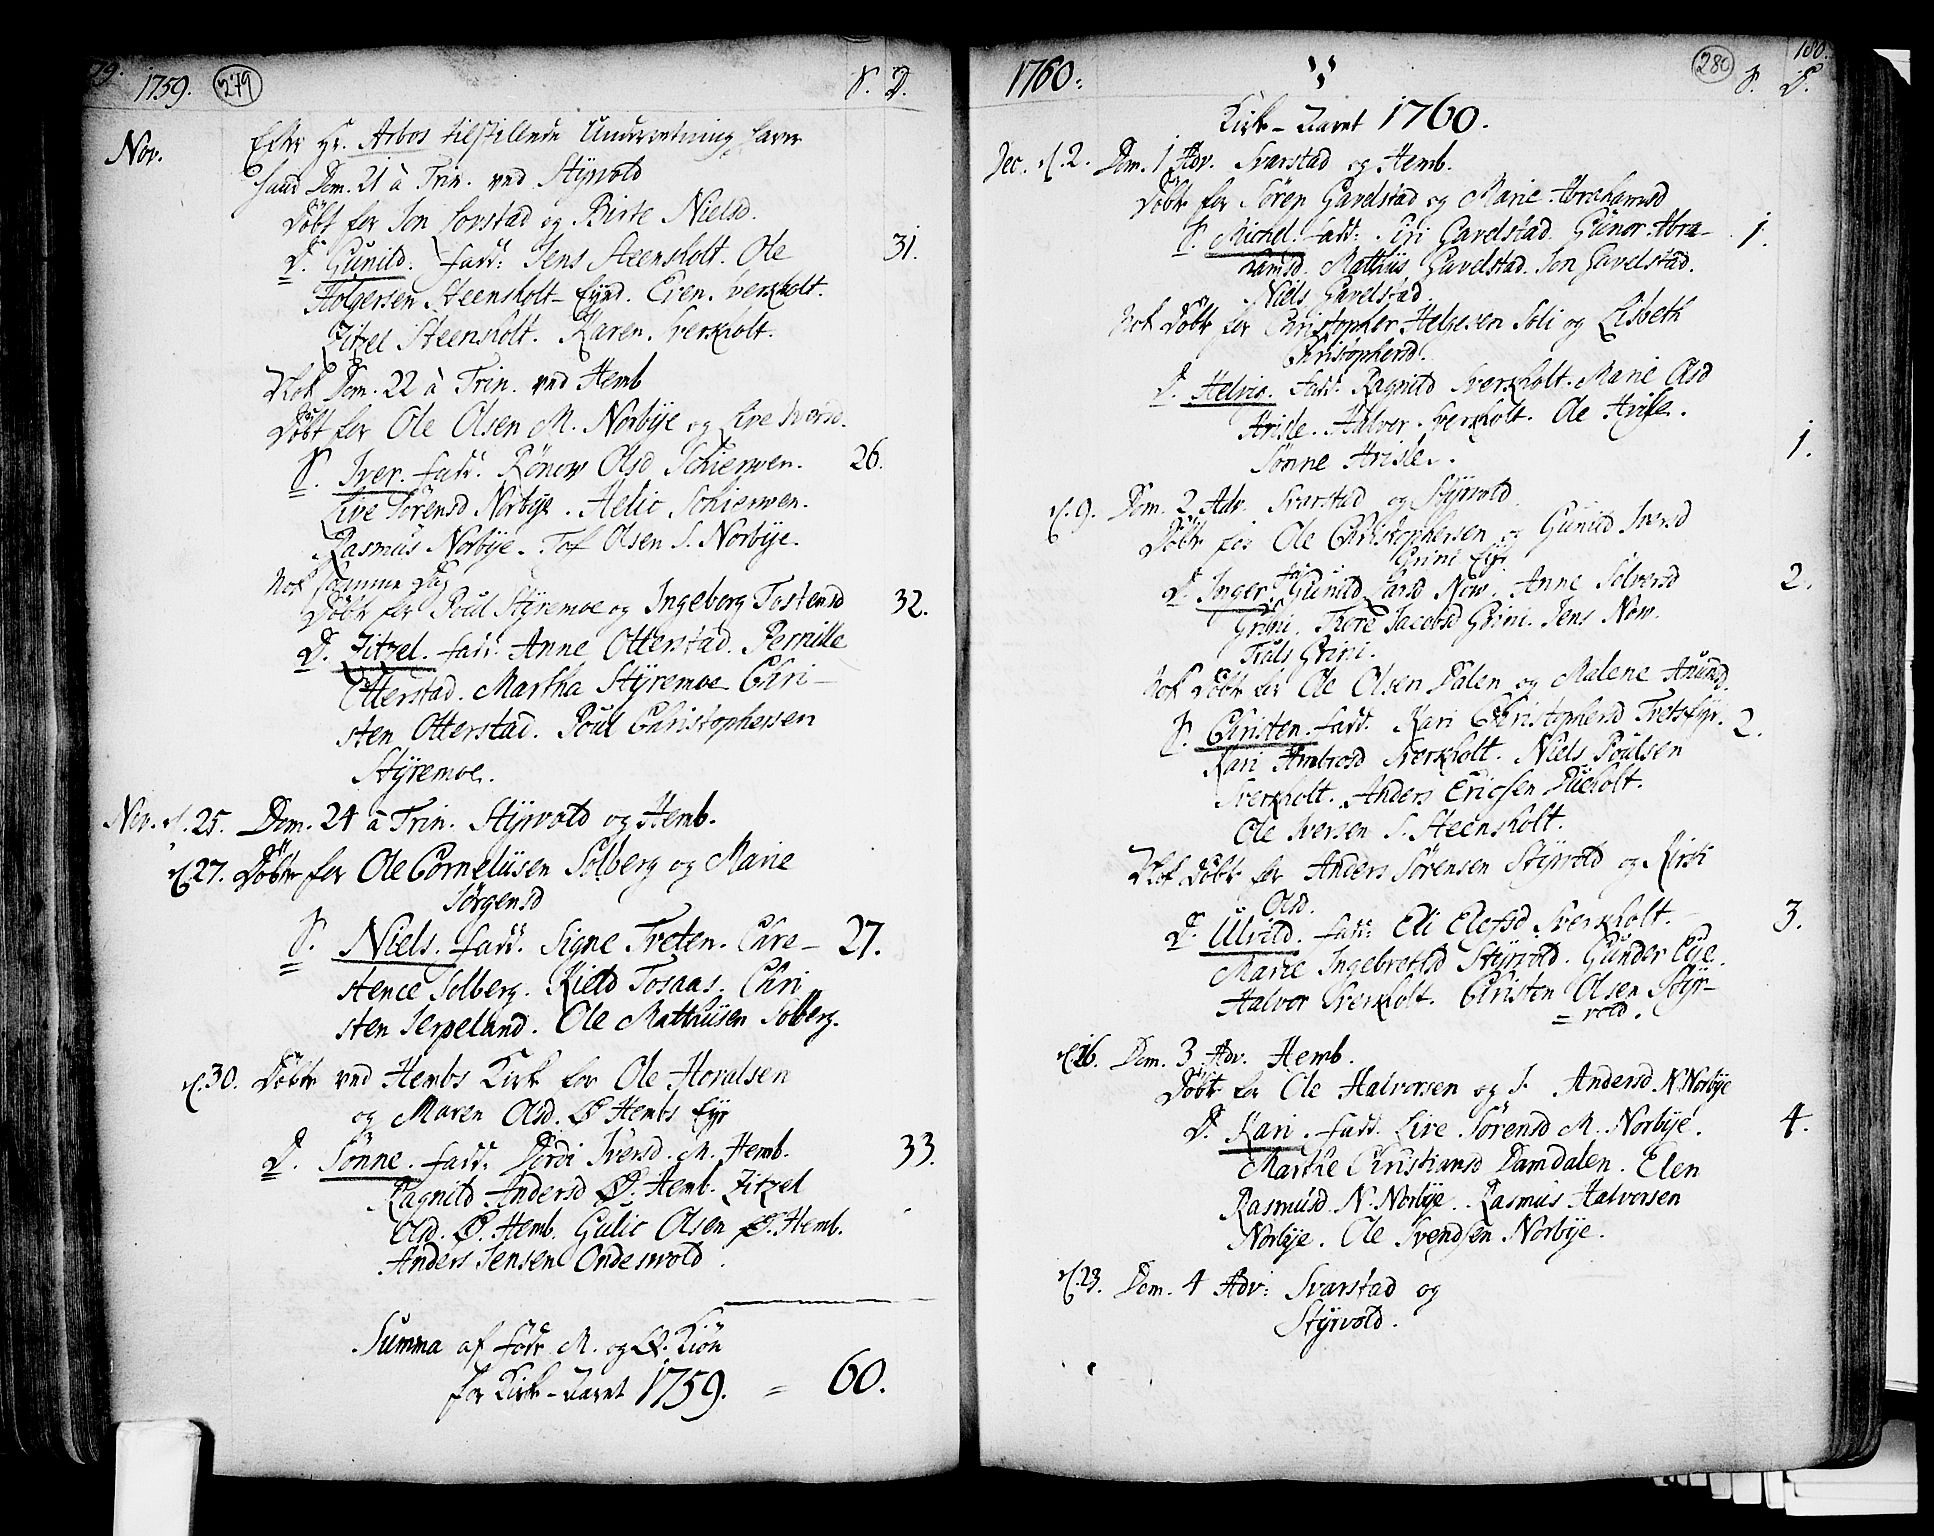 79. 1759. 279 S. D.
Nov. Efter Hr. Arbos tilstillende Underretning
Dom. 21 à Trin. ved Styrvold
Døbt for Jon Sorstad og Birte Nielsd.
D. Gunild. fadd: Jens Steensholt. Ole 31.
Holgersen Steensholt. Even Sverkholt.
Zitzel Steensholt. Karen Sverkholt.
Nok Dom. 22 à Trin. ved Hemb
Døbt for Ole Olsen M. Norbÿe og Live Iversd.
S. Iver. fadd. Rönow Olsd Schierwen. 26.
Live Sörensd Norbÿe. Helie Schierwen.
Rasmus Norbÿe. Tof Olsen S. Norbÿe.
Nok samme Dag
Døbt for Poul Styremoe og Ingeborg Tostensd 32.
D. Zitzel. fadd. Anne Otterstad. Pernille
Otterstad. Martha Styremoe Chri-
sten Otterstad. Poul Christophersen
Styremoe.
Nov. d. 25. Dom. 24 à Trin. Styrvold og Hemb.
d. 27. Døbt for Ole Cornelüsen Solberg og Marie
Jörgensd
S. Niels. fadd. Signe Treten. Chre- 27.
stence Solberg. Kield Tosaas. Chri
sten Serpeland. Ole Mathiisen Solberg.
d. 30. Døbt ved Hembs Kirk for Ole Horalsen
og Maren Olsd. Ø Hembs Eÿr
D. Sönne. fadd. Dordi Iversd. M. Hemb. 33.
Ragnild Andersd Ø. Hemb. Zitzel
Olsd. Ø. Hemb. Gulic Olsen Ø. Hemb.
Anders Jensen Ondeswold.
Summa af fødte M. og Q. Kiön
for Kirk-Aaret 1759. = 60.
1760. 280 180. S. D.
Kirk-Aaret 1760.
Dec. d. 2. Dom. 1 Adv. Svarstad og Hemb.
Døbt for Sören Gavelstad og Marie Abrahamsd
S. Michel. fadd: Siri Gavelstad. Gunor Abra- 1.
hamsd. Mathiis Gavelstad. Jon Gavelstad.
Niels Gavelstad.
Nok Døbt for Christopher Helgesen Soli og Lisbeth
Christophersd.
D. Helvig. fadd. Ragnild Sverkholt. Marie Olsd
Hvisle. Halvor Sverkholt. Ole Hvisle.
Sönne Hvisle. 1.
d. 9. Dom. 2 Adv. Svarstad og Styrvold
Døbt for Ole Christophersen og Gunild Iversd
Grini Eÿr
D. Inger. fad Gunild Larsd Now. Anne Solversd 2.
Grini. Thore Jacobsd Grini. Jens Now.
Truls Grini.
Nok Døbt for Ole Olsen Dalen og Malene Anunds.
S. Christen. fadd. Kari Christophersd Tretsfÿr. 2.
Kari Ambrosd Sverkholt. Niels Poulsen
Sverkholt. Anders Ericsen Dueholt.
Ole Iversen S. Steensholt.
Nok Døbt for Anders Sörensen Styrvold og Kirsti
Olsd.
D. Ulvild. fadd: Eli Elefsd Sverkholt. 3.
Marie Ingebretsd Styrvold. Gunder Eÿe.
Halvor Sverkholt. Christen Olsen Styr-
= vold.
d. 16. Dom. 3 Adv. Hemb.
Døbt for Ole Halvorsen og I. Andersd N. Norbÿe
D. Kari. fadd. Live Sörensd M. Norbÿe. 4.
Marthe Christiansd Damdalen. Elen
Rasmusd N. Norbÿe. Rasmus Halvorsen
Norbÿe. Ole Svendsen Norbÿe.
d. 23. Dom. 4 Adv: Svarstad og
Styrvold.